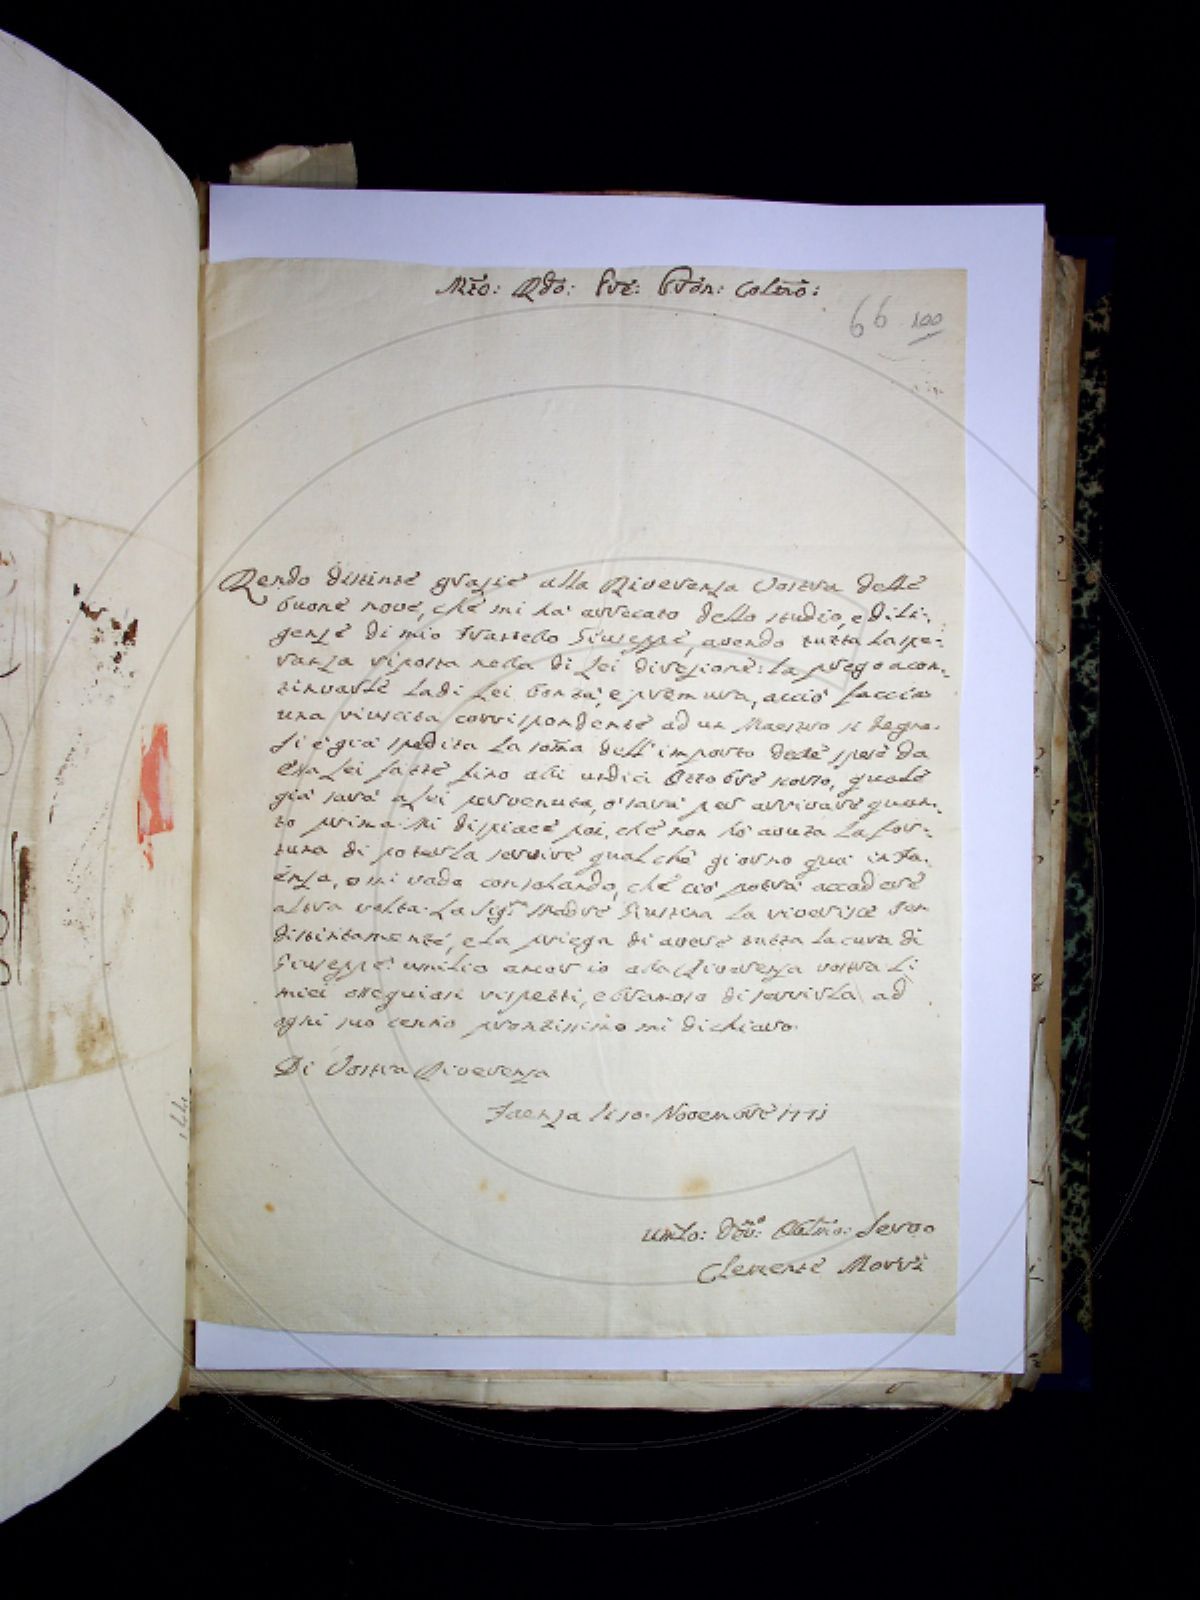 Mto: Rdo: Pre: Pron: Colmo:
66 100
Rendo distinte grazie alla Riverenza Vostra delle
buone nove, che mi hà arrecato dello studio, e dili-
genze di mio Fratello Giuseppe, avendo tutta la spe-
ranza riposta nella di Lei direzione: la prego a con-
tinuarle la di Lei bontà, e premura, acciò faccia
una riuscita corrispondente ad un Maestro sì degno.
Si è già spedita la somma dell'importo delle spese da
essa Lei fatte fino alli undici Ottobre scorso, quale
già sarà a Lei pervenuta, ò sarà per arrivare quan-
to prima. Mi dispiace poi, che non hò avuta la for-
tuna di poterla servire qualche giorno quà in Fa-
enza, e mi vado consolando, che ciò potrà accadere
altra volta. La Sig.ra Madre Giustina La riverisce ben
distintamente, e La priega di avere tutta la cura di
Giuseppe: umilio ancor io alla Riverenza vostra li
miei ossequiosi rispetti, e bramoso di servirla ad
ogni suo cenno prontissimo mi dichiaro.
Di Vostra Riverenza
Faenza li 10. Novembre 1771
Umlo: Devmo: Obblmo: Servo
Clemente Morri
144